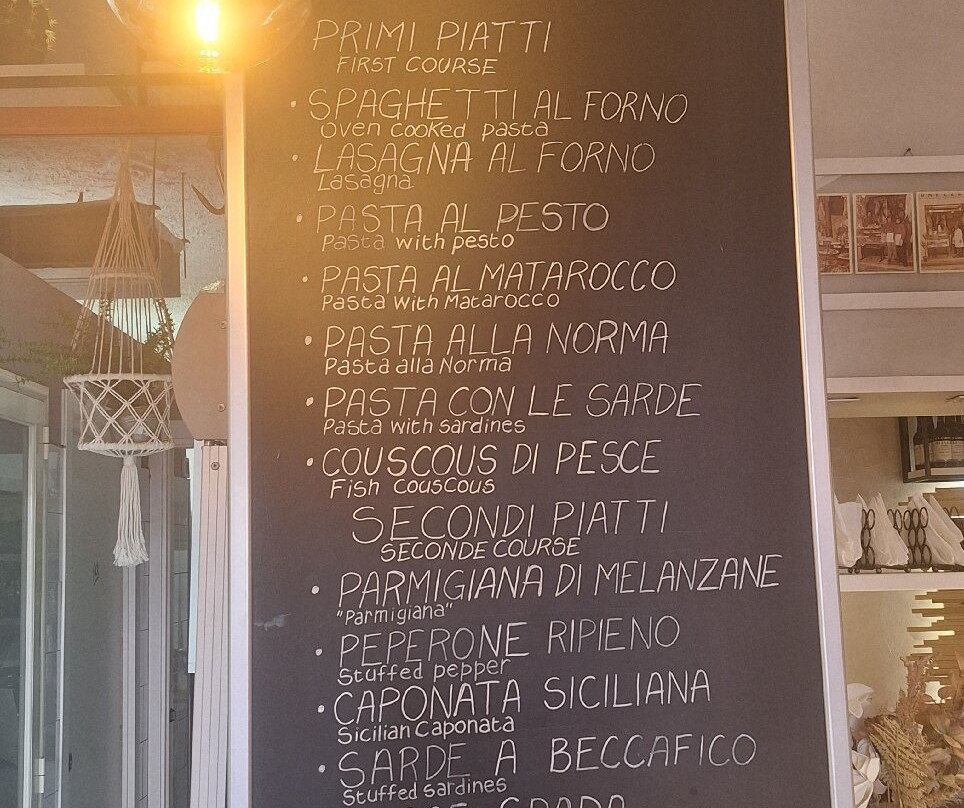 PRIMI PIATTI
FIRST COURSE
• SPAGHETTI AL FORNO
Oven cooked pasta
• LASAGNA AL FORNO
Lasagna
• PASTA AL PESTO
Pasta with pesto
• PASTA AL MATAROCCO
Pasta with Matarocco
• PASTA ALLA NORMA
Pasta alla Norma
• PASTA CON LE SARDE
Pasta with sardines
• COUSCOUS DI PESCE
Fish couscous
SECONDI PIATTI
SECONDE COURSE
• PARMIGIANA DI MELANZANE
"Parmigiana"
• PEPERONE RIPIENO
Stuffed pepper
• CAPONATA SICILIANA
Sicilian Caponata
• SARDE A BECCAFICO
Stuffed sardines